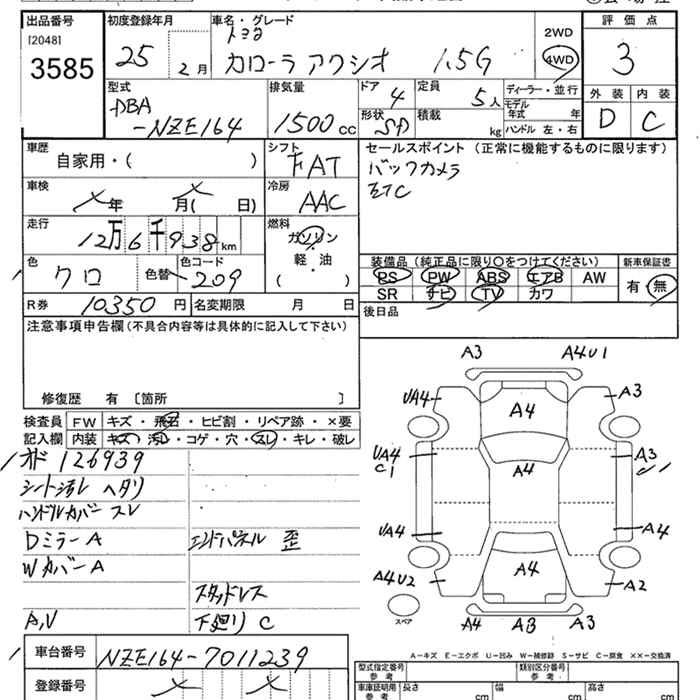 出品番号 初度登録年月 車名・グレード 評価点
[2048] トヨタ 2WD
3585 25 2月 カローラ アクシオ 1.5G 4WD 3
型式 排気量 ドア 4 定員 5人 ディーラー・並行 外装 内装
DBA モデル年式 年 D C
-NZE164 1500cc 形状 SD 積載 kg ハンドル 左・右
車歴 シフト セールスポイント (正常に機能するものに限ります)
自家用・( ) FAT バックカメラ
車検 冷房 ETC
メ年 メ月( 日) AAC
走行 燃料
12万6千938km ガソリン
軽・油
( )
装備品 (純正品に限り○をつけてください) 新車保証書
色 クロ 色替 色コード 209 PS PW ABS エアB AW 有・無
SR ナビ TV カワ
R券 10350円 名変期限 月 日 後日品
注意事項申告欄 (不具合内容等は具体的に記入して下さい)
修復歴 有 〔箇所 〕
検査員 FW キズ・飛石・ヒビ割・リペア跡・×要
記入欄 内装 キズ・汚レ・コゲ・穴・スレ・キレ・破レ
オド 126939
シート汚レ ヘタリ
ハンドルカバー スレ
Dミラー A エンドパネル 歪
Wカバー A
スタッドレス
A,V 下廻り C
A3 A4U1
UA4 A4 A3
UA4 A4 A3
C1
UA4 A4
A4U2 A4 A2
スペア
A4 A3 A3
A-キズ E-エクボ U-凹み W-補修跡 S-サビ C-腐食 XX-交換済
車台番号 NZE164-7011239
登録番号 メ メ
型式指定番号 類別区分番号
参考 参考
車庫証明用 長さ cm 幅 cm 高さ cm
参考